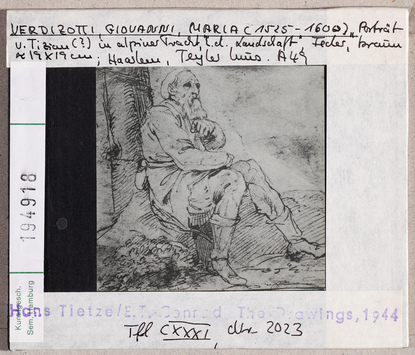 VERDIZOTTI, GIOVANNI, MARIA (1525-1600), "Porträt
v. Tizian (?) in alpiner Tracht i. d. Landschaft", Feder, braun
≈ 19 x 19 cm, Haarlem, Teyler Mus. A 49
194918
Kunstgesch.
Sem. Hamburg
Hans Tietze/E.T.-Conrad, The Drawings, 1944
Tfl CXXXI, Nr. 2023